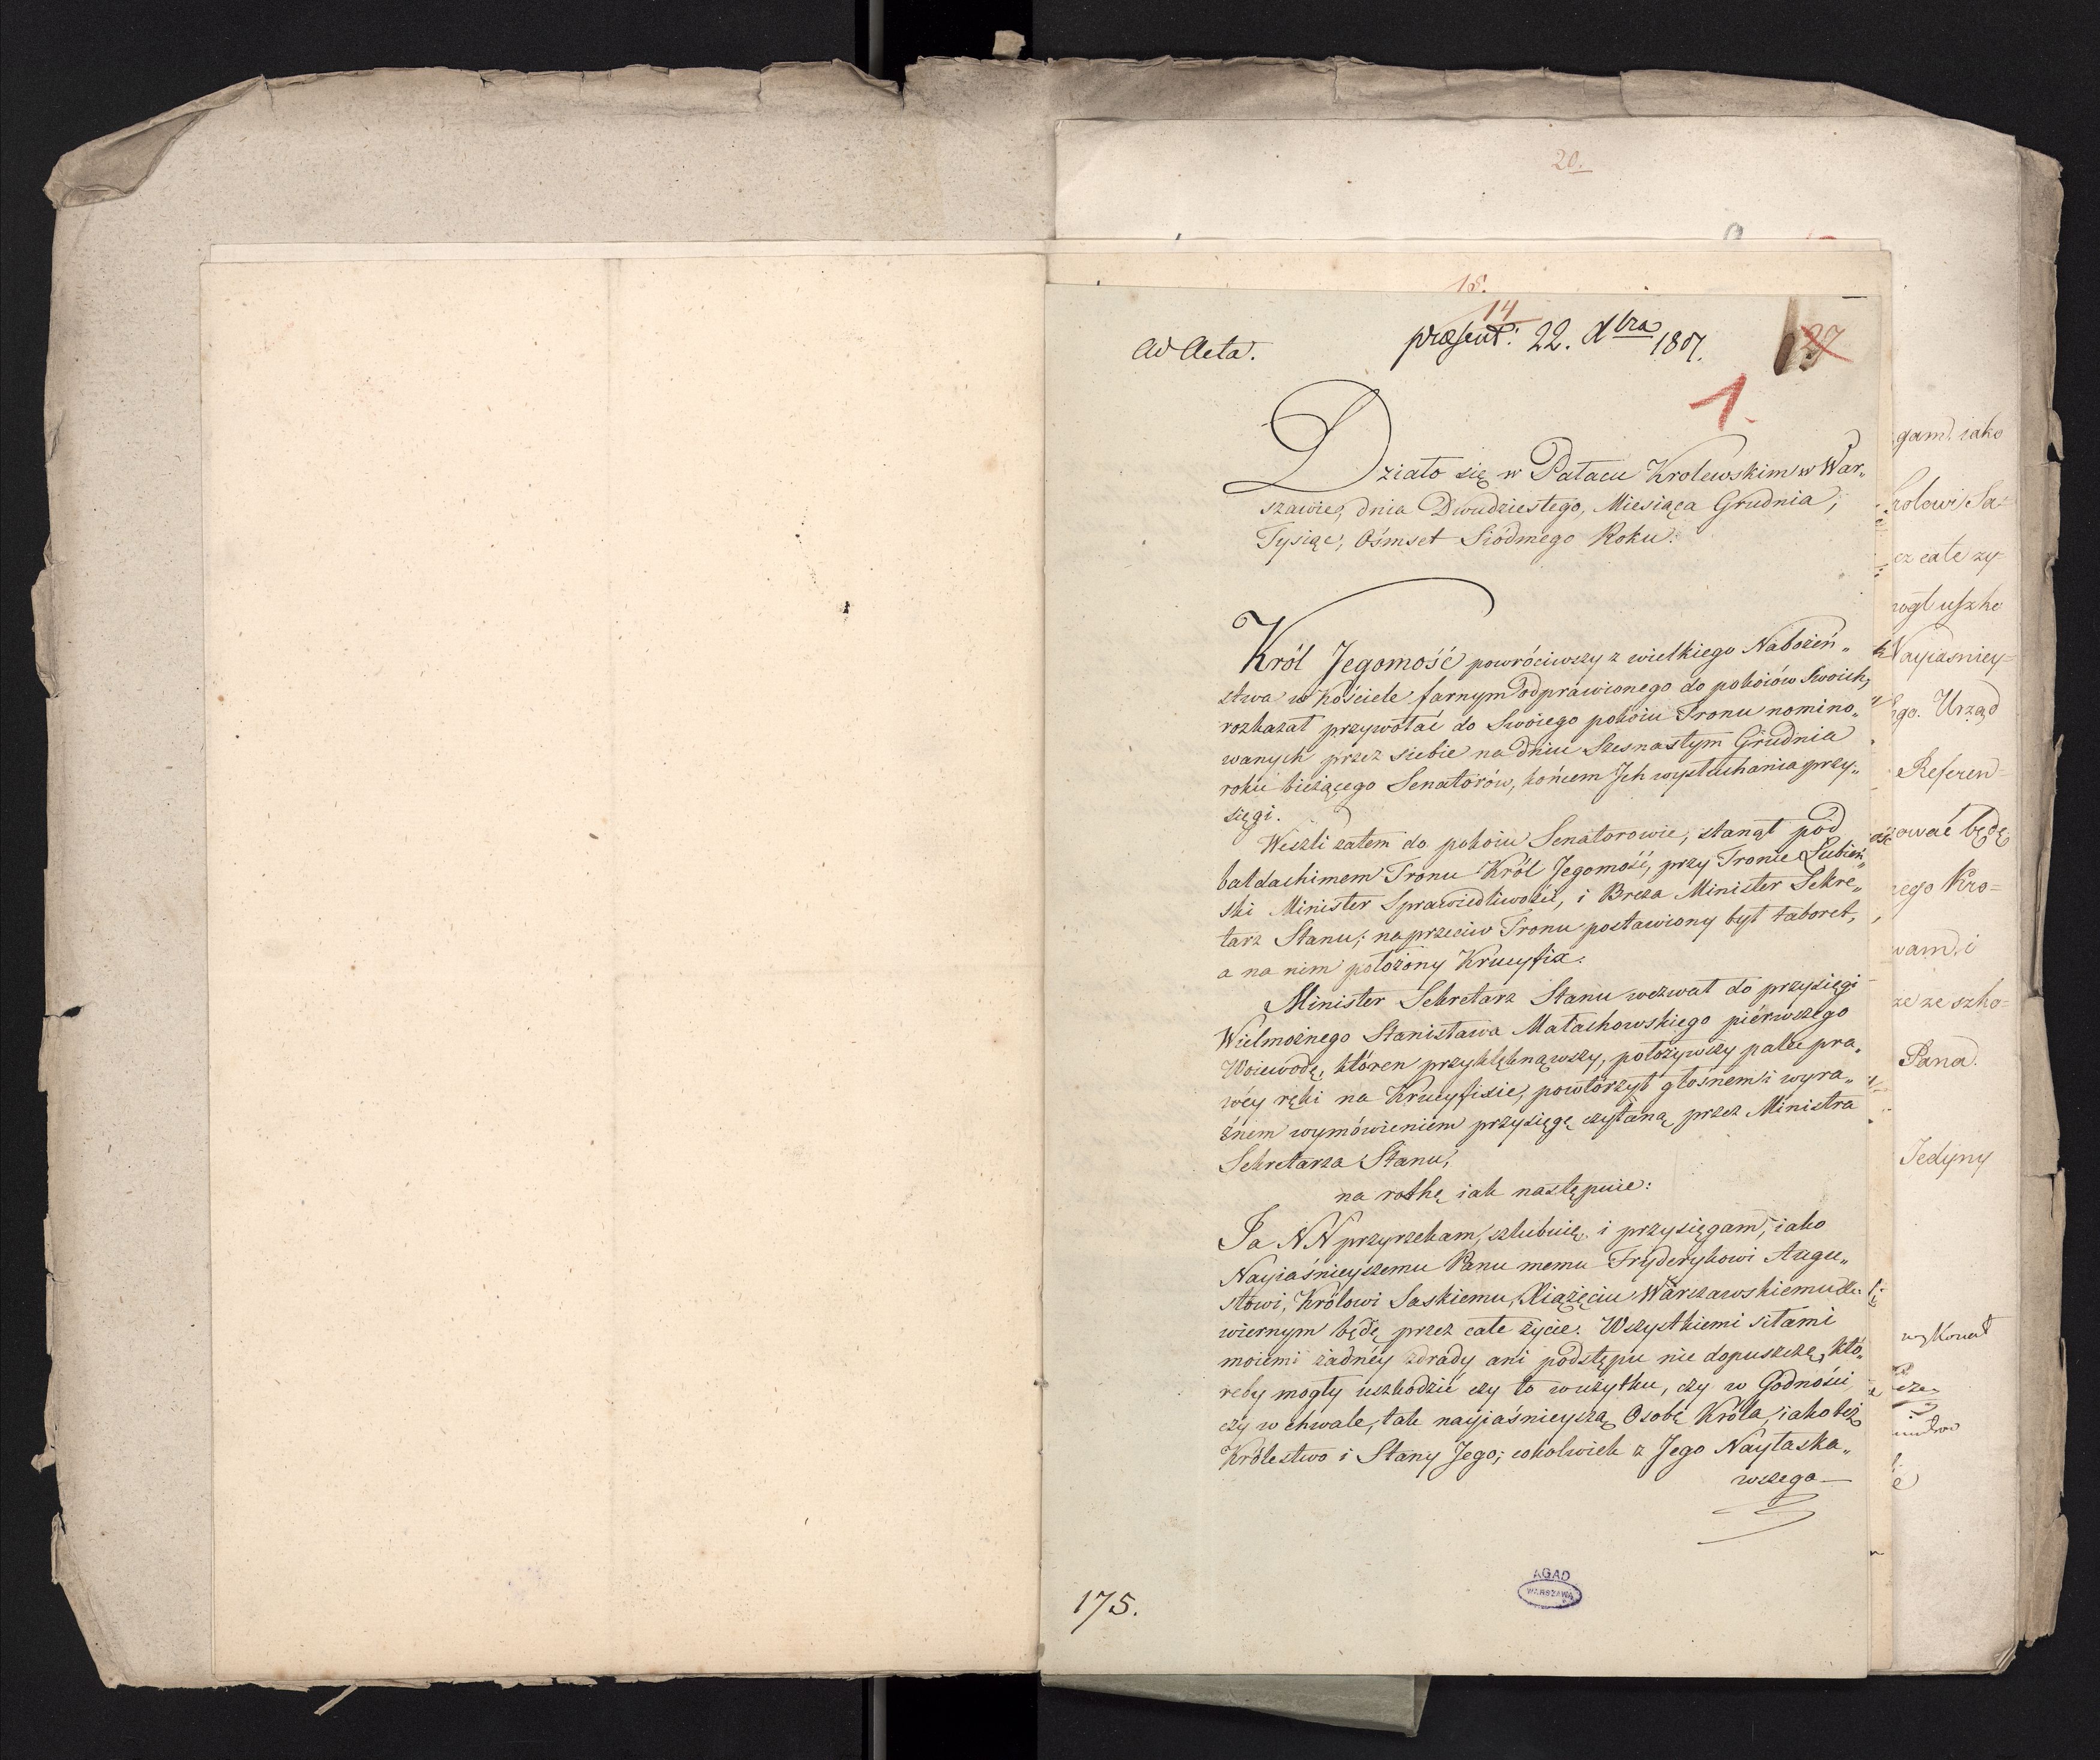 20.
18.
14
Ad Acta.
præsent: 22. Xbra 1807.
27
1.
Działo się w Pałacu Krolewskim w War„
szawie, dnia Dwudziestego, Miesiąca Grudnia,
Tysiąc, Ośmset Siódmego Roku.
Król Jegomość powróciwszy z wielkiego Nabożeń„
stwa w Kościele farnym odprawionego do pokoiów Swoich,
rozkazał przywołać do Swoiego pokoiu Tronu nomino„
wanych przez siebie na dniu Szesnastym Grudnia
roku bieżącego Senatorów, końcem Ich wysłuchania przy„
sięgi.
Weszli zatem do pokoiu Senatorowie, stanął pod
baldachimem Tronu Król Jegomość, przy Tronie Łubień„
ski Minister Sprawiedliwości, i Breza Minister Sekre„
tarz Stanu; naprzeciw Tronu postawiony był taboret,
a na nim położony Krucyfix.
Minister Sekretarz Stanu wezwał do przysięgi
Wielmożnego Stanisława Małachowskiego piérwszego
Woiewodę, któren przyklęknąwszy, położywszy palce pra„
wéy ręki na Krucyfixie, powtórzył głośnem i wyra„
źnem wymówieniem przysięgę czytaną przez Ministra
Sekretarza Stanu,
na rothę iak następuie:
Ja NN przyrzekam, szlubuię i przysięgam, iako
Nayiaśnieyszemu Panu memu Fryderykowi Augu„
stowi, Królowi Saskiemu, Xiążęciu Warszawskiemu &c.
wiernym będę przez całe życie. Wszystkiemi siłami
moiemi żadnéy zdrady ani podstępu nie dopuszczę, któ„
reby mogły uszkodzić czy to w użytku, czy w Godności
czy w chwale, tak nayiaśnieyszą Osobę Króla, iako też
Królestwo i Stany Jego; cokolwiek z Jego Nayłaska„
wszego
175.
AGAD
WARSZAWA
gam, iako
rolowi Sa=
ez całe ży=
mogł uszko
Nayiasniey=
go. Urząd
Referen=
ować będę
ego Kro=
wam, i
że ze szko=
Pana
Jedyny
wykonał